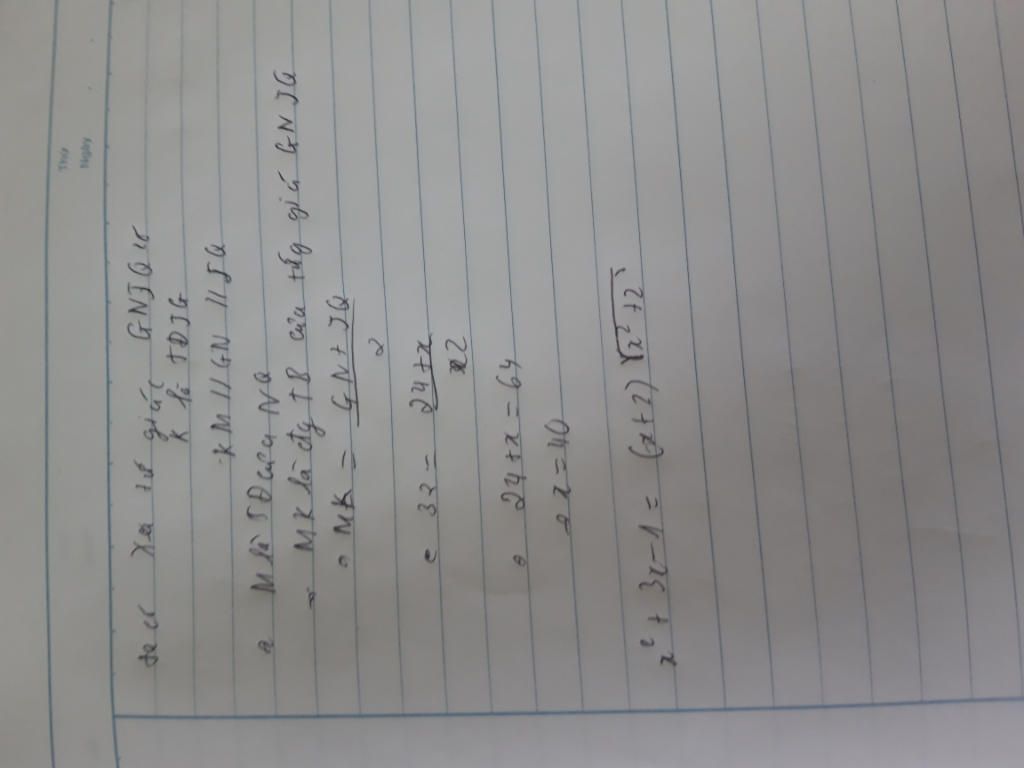 Thứ
Ngày
Ta có Xét tứ giác GNJQ có
K là TĐJG
KM // GN // JQ
M là TĐ của NQ
MK là đg TB của tứ giá GNJQ
MK = GN + JQ / 2
32 = 24+x / 2
24+x = 64
x = 40
x² + 3x - 1 = (x+2) √x² + 2